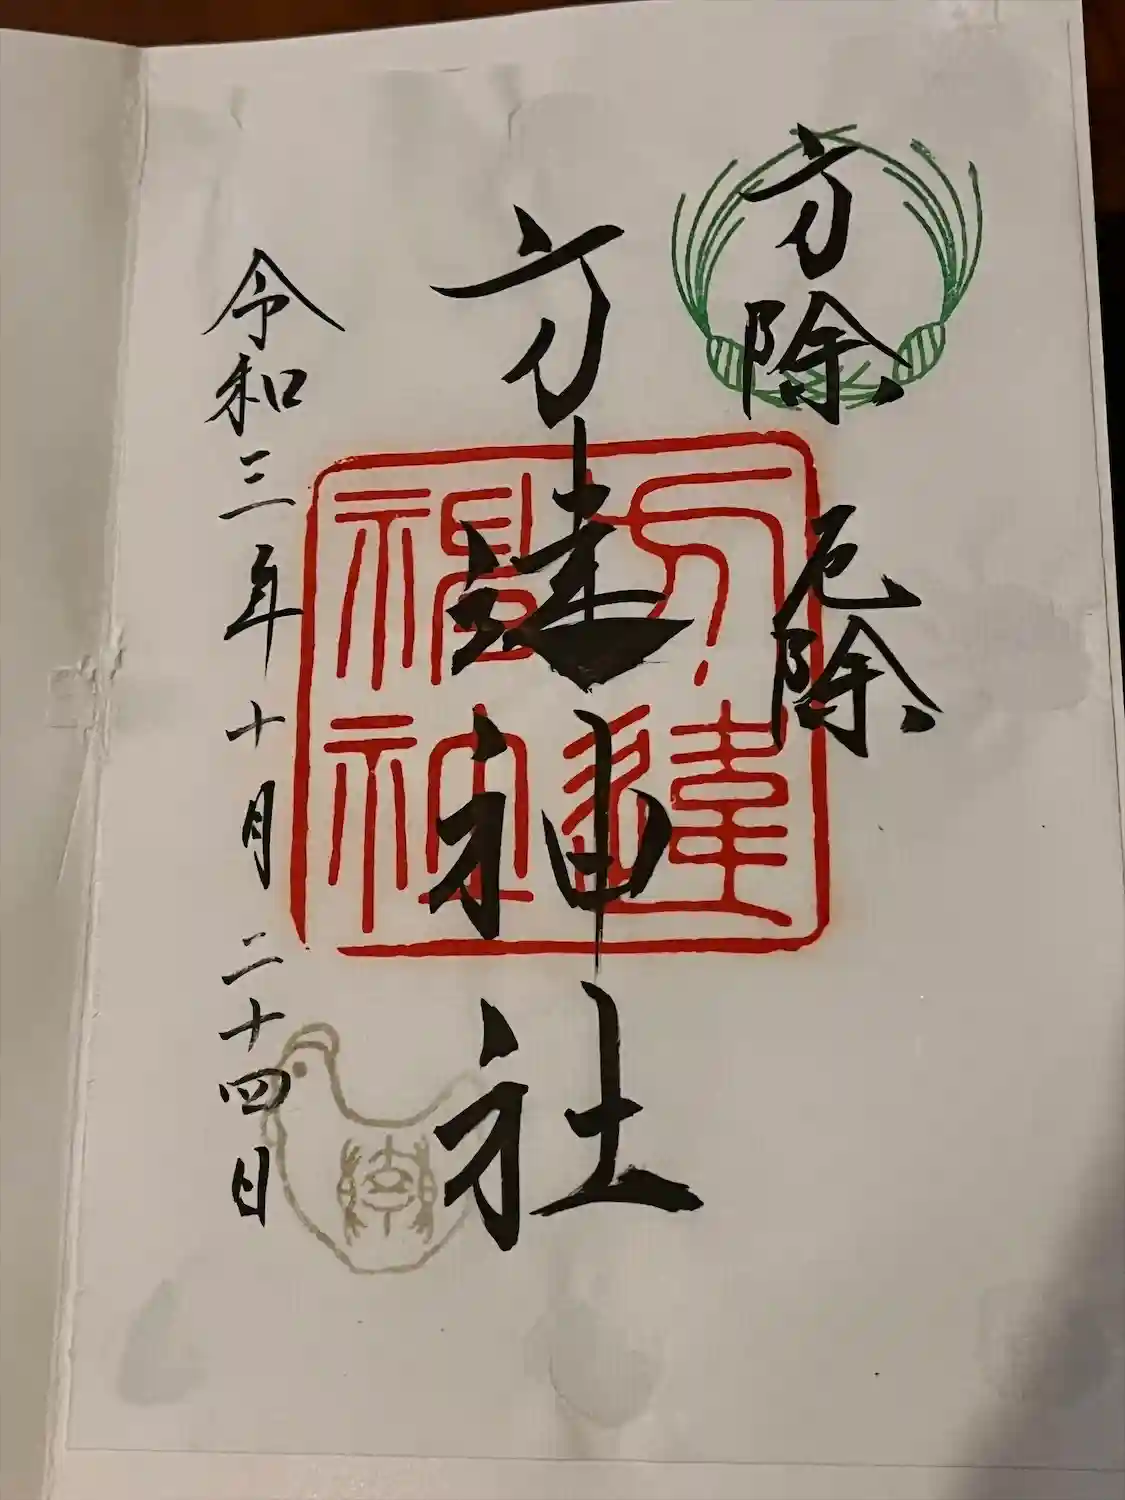 方除 厄除
方違神社
方違
令和三年十月二十四日